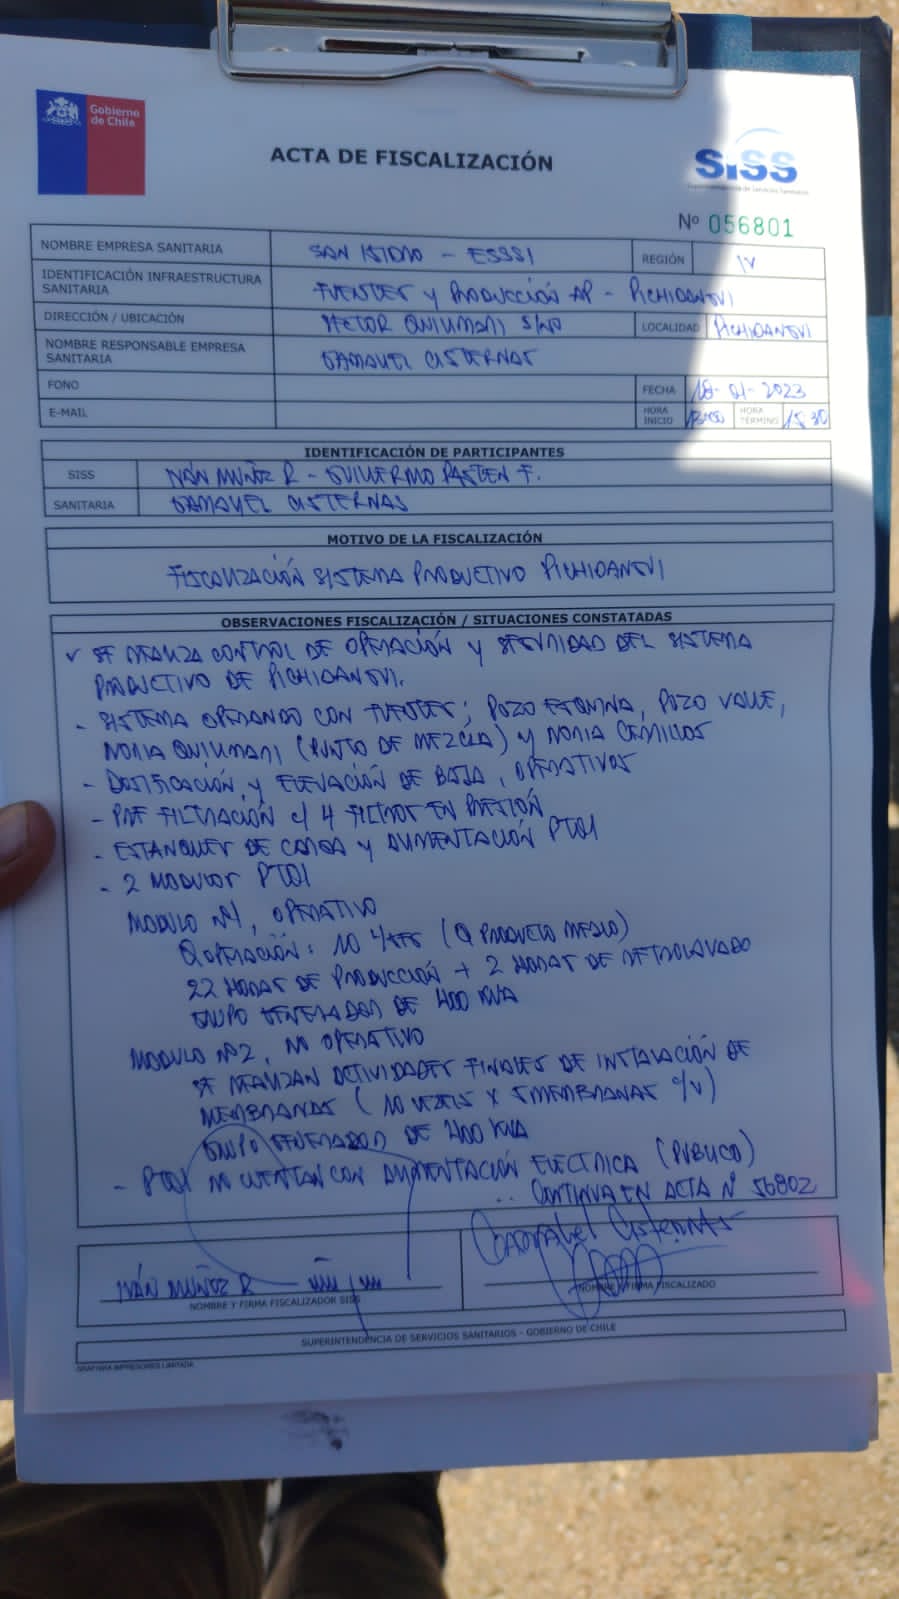 Gobierno
de Chile
ACTA DE FISCALIZACIÓN
SISS
Superintendencia de Servicios Sanitarios
Nº 056801
NOMBRE EMPRESA SANITARIA SAN ISIDRO - ESSSI REGIÓN IV
IDENTIFICACIÓN INFRAESTRUCTURA SANITARIA FUENTES Y PRODUCCIÓN AP - PICHIDANGUI
DIRECCIÓN / UBICACIÓN SECTOR QUILIMARI S/Nº LOCALIDAD PICHIDANGUI
NOMBRE RESPONSABLE EMPRESA SANITARIA CISTERNAS
FONO FECHA 18-01-2023
E-MAIL HORA INICIO HORA TÉRMINO 15:30
IDENTIFICACIÓN DE PARTICIPANTES
SISS IVÁN MUÑOZ R - GUILLERMO PASTEN F.
SANITARIA CISTERNAS
MOTIVO DE LA FISCALIZACIÓN
FISCALIZACIÓN SISTEMA PRODUCTIVO PICHIDANGUI
OBSERVACIONES FISCALIZACIÓN / SITUACIONES CONSTATADAS
✓ SE REALIZA CONTROL DE OPERACIÓN Y SEGURIDAD DEL SISTEMA
PRODUCTIVO DE PICHIDANGUI.
- SISTEMA OPERANDO CON FUENTES; POZO POZO VALLE,
NORIA QUILIMARI (PUNTO DE MEZCLA) Y NORIA CERRILLOS
- DOSIFICACIÓN Y ELEVACIÓN DE BAJA, OPERATIVOS
- PRE FILTRACIÓN c/ 4 FILTROS EN PRESIÓN
- ESTANQUES DE CARGA Y ALIMENTACIÓN PTOI
- 2 MODULOS PTOI
MODULO Nº1, OPERATIVO
Q OPERACIÓN: 10 (Q MEDIO)
22 HORAS DE PRODUCCIÓN + 2 HORAS DE RETROLAVADO
GRUPO GENERADOR DE 400 KVA
MODULO Nº2, NO OPERATIVO
SE REALIZAN ACTIVIDADES FINALES DE INSTALACIÓN DE
MEMBRANAS (10 X 5 MEMBRANAS c/v)
GRUPO GENERADOR DE 400 KVA
- PTOI NO CUENTAN CON ALIMENTACIÓN ELECTRICA (PUBLICO)
.. CONTINUA EN ACTA Nº 56802
Cisternas
IVÁN MUÑOZ R
NOMBRE Y FIRMA FISCALIZADOR SISS
NOMBRE Y FIRMA FISCALIZADO
SUPERINTENDENCIA DE SERVICIOS SANITARIOS - GOBIERNO DE CHILE
IMPRESORES LIMITADA